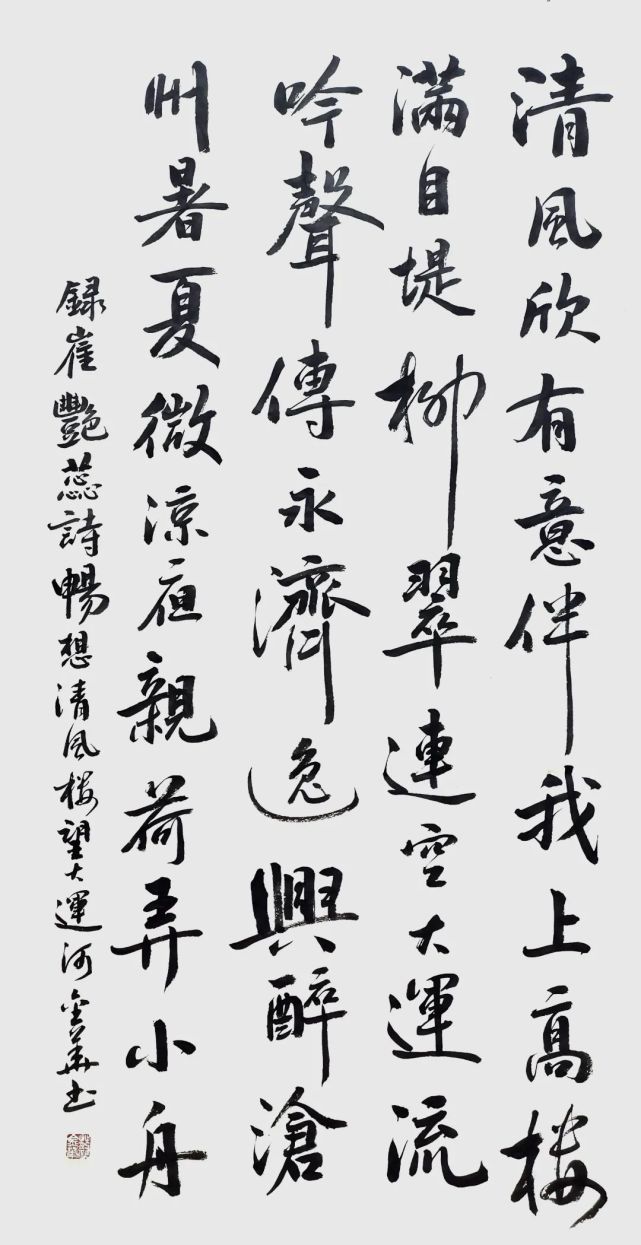 清風欣有意伴我上高楼
滿目堤柳翠連空大運流
吟聲傳永濟逸興醉滄
州暑夏微涼夜親荷弄小舟
録崔豔蕊詩暢想清風楼望大運河金華书